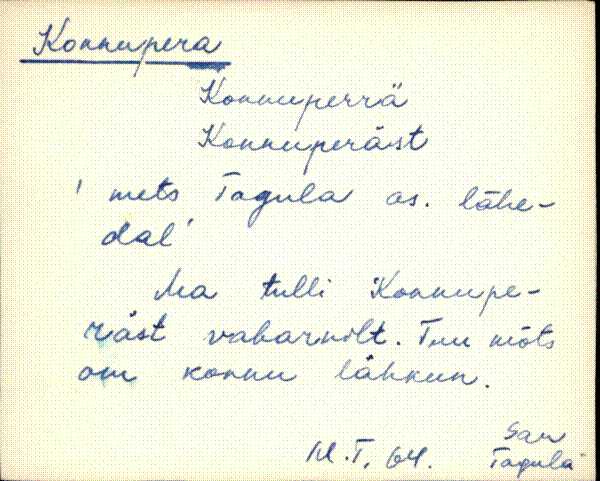 Konnupera
Konnuperrä
Konnuperäst
' mets Tagula as. lähe-
dal'
Ma tulli Konnupe-
räst vabarnilt. Tuu mõts
om konnu lähkun.
M.T. 64. San
Tagula